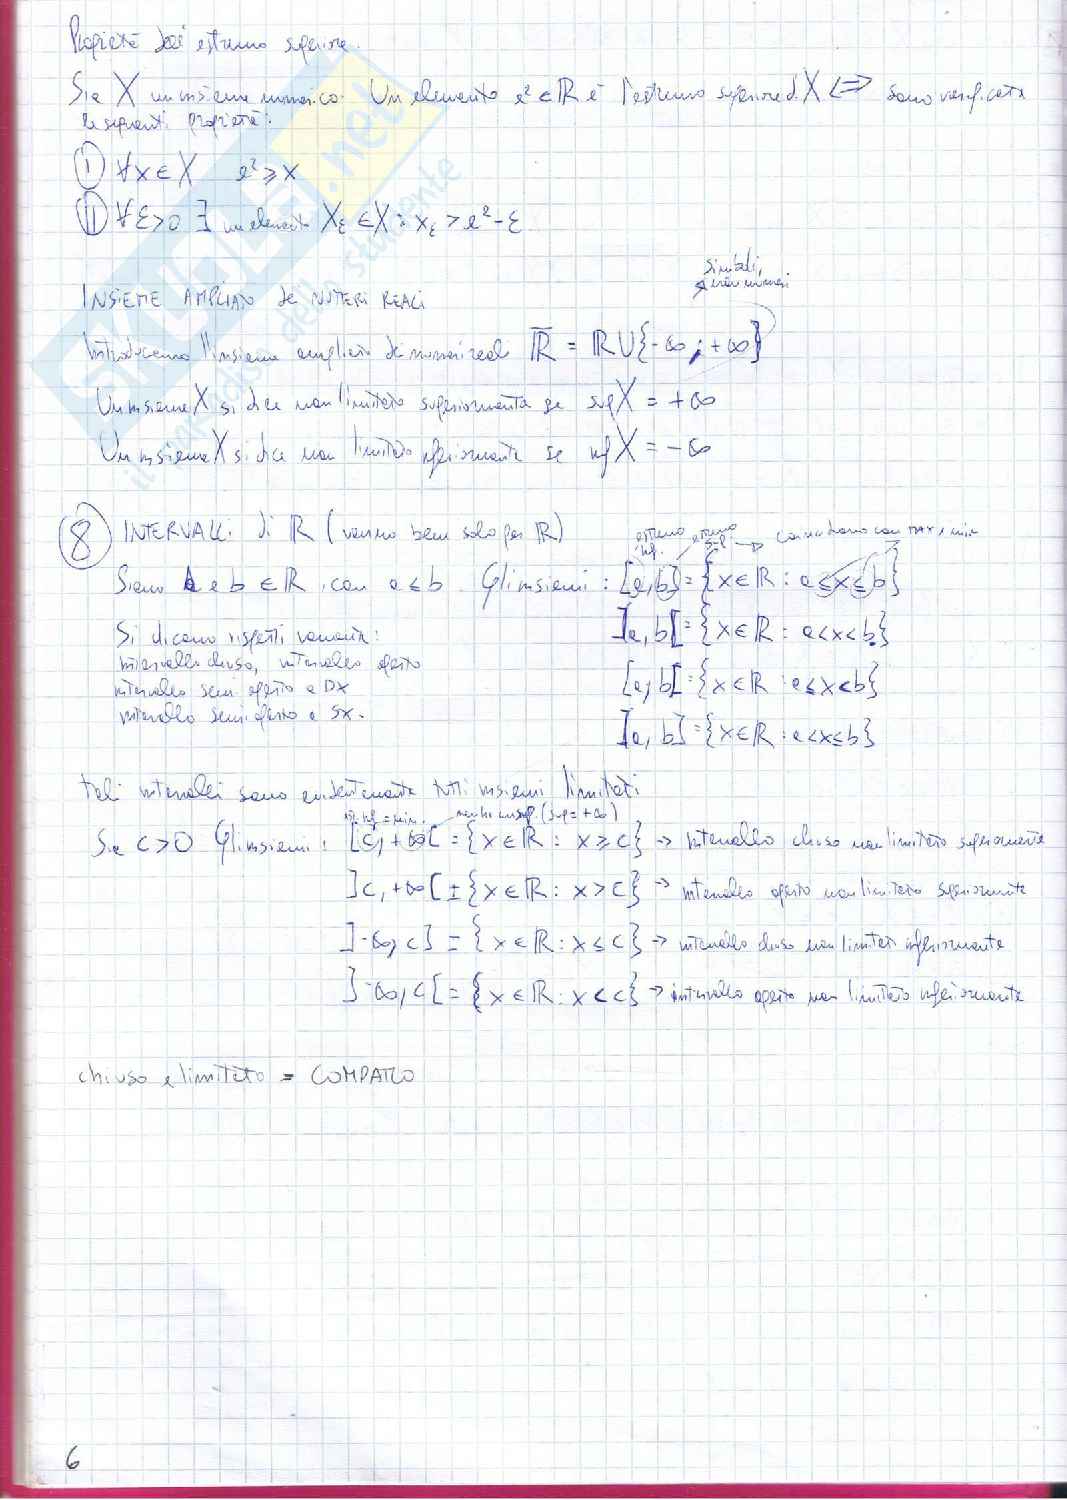 Proprietà dell'estremo superiore.
Sia X un insieme numerico. Un elemento e² ∈ ℝ è l'estremo superiore di X ⟺ sono verificate
le seguenti proprietà:
I ∀x ∈ X e² ≥ x
II ∀ε>0 ∃ un elemento Xε ∈ X : xε > e² - ε
simboli,
non numeri
INSIEME AMPLIATO dei NUMERI REALI
Introduciamo l'insieme ampliato dei numeri reali ℝ̅ = ℝ ∪ {-∞ ; +∞}
Un insieme X si dice non limitato superiormente se sup X = +∞
Un insieme X si dice non limitato inferiormente se inf X = -∞
8 INTERVALLI di ℝ (vanno bene solo per ℝ)
estremo inf. estremo sup. → coincidono con MAX e min
Siano a e b ∈ ℝ, con a ≤ b. Gli insiemi : [a, b] = {x ∈ ℝ : a ≤ x ≤ b}
]a, b[ = {x ∈ ℝ : a < x < b}
Si dicono rispettivamente:
intervallo chiuso, intervallo aperto
[a, b[ = {x ∈ ℝ : a ≤ x < b}
intervallo semiaperto a DX
intervallo semiaperto a SX.
]a, b] = {x ∈ ℝ : a < x ≤ b}
tali intervalli sono evidentemente tutti insiemi limitati
inf = min. (sup = +∞)
Sia c > 0 Gli insiemi : [c, +∞[ = {x ∈ ℝ : x ≥ c} → intervallo chiuso non limitato superiormente
]c, +∞[ = {x ∈ ℝ : x > c} → intervallo aperto non limitato superiormente
]-∞, c] = {x ∈ ℝ : x ≤ c} → intervallo chiuso non limitato inferiormente
]-∞, c[ = {x ∈ ℝ : x < c} → intervallo aperto non limitato inferiormente
chiuso e limitato = COMPATTO
6
skuola.net
il paradiso dello studente